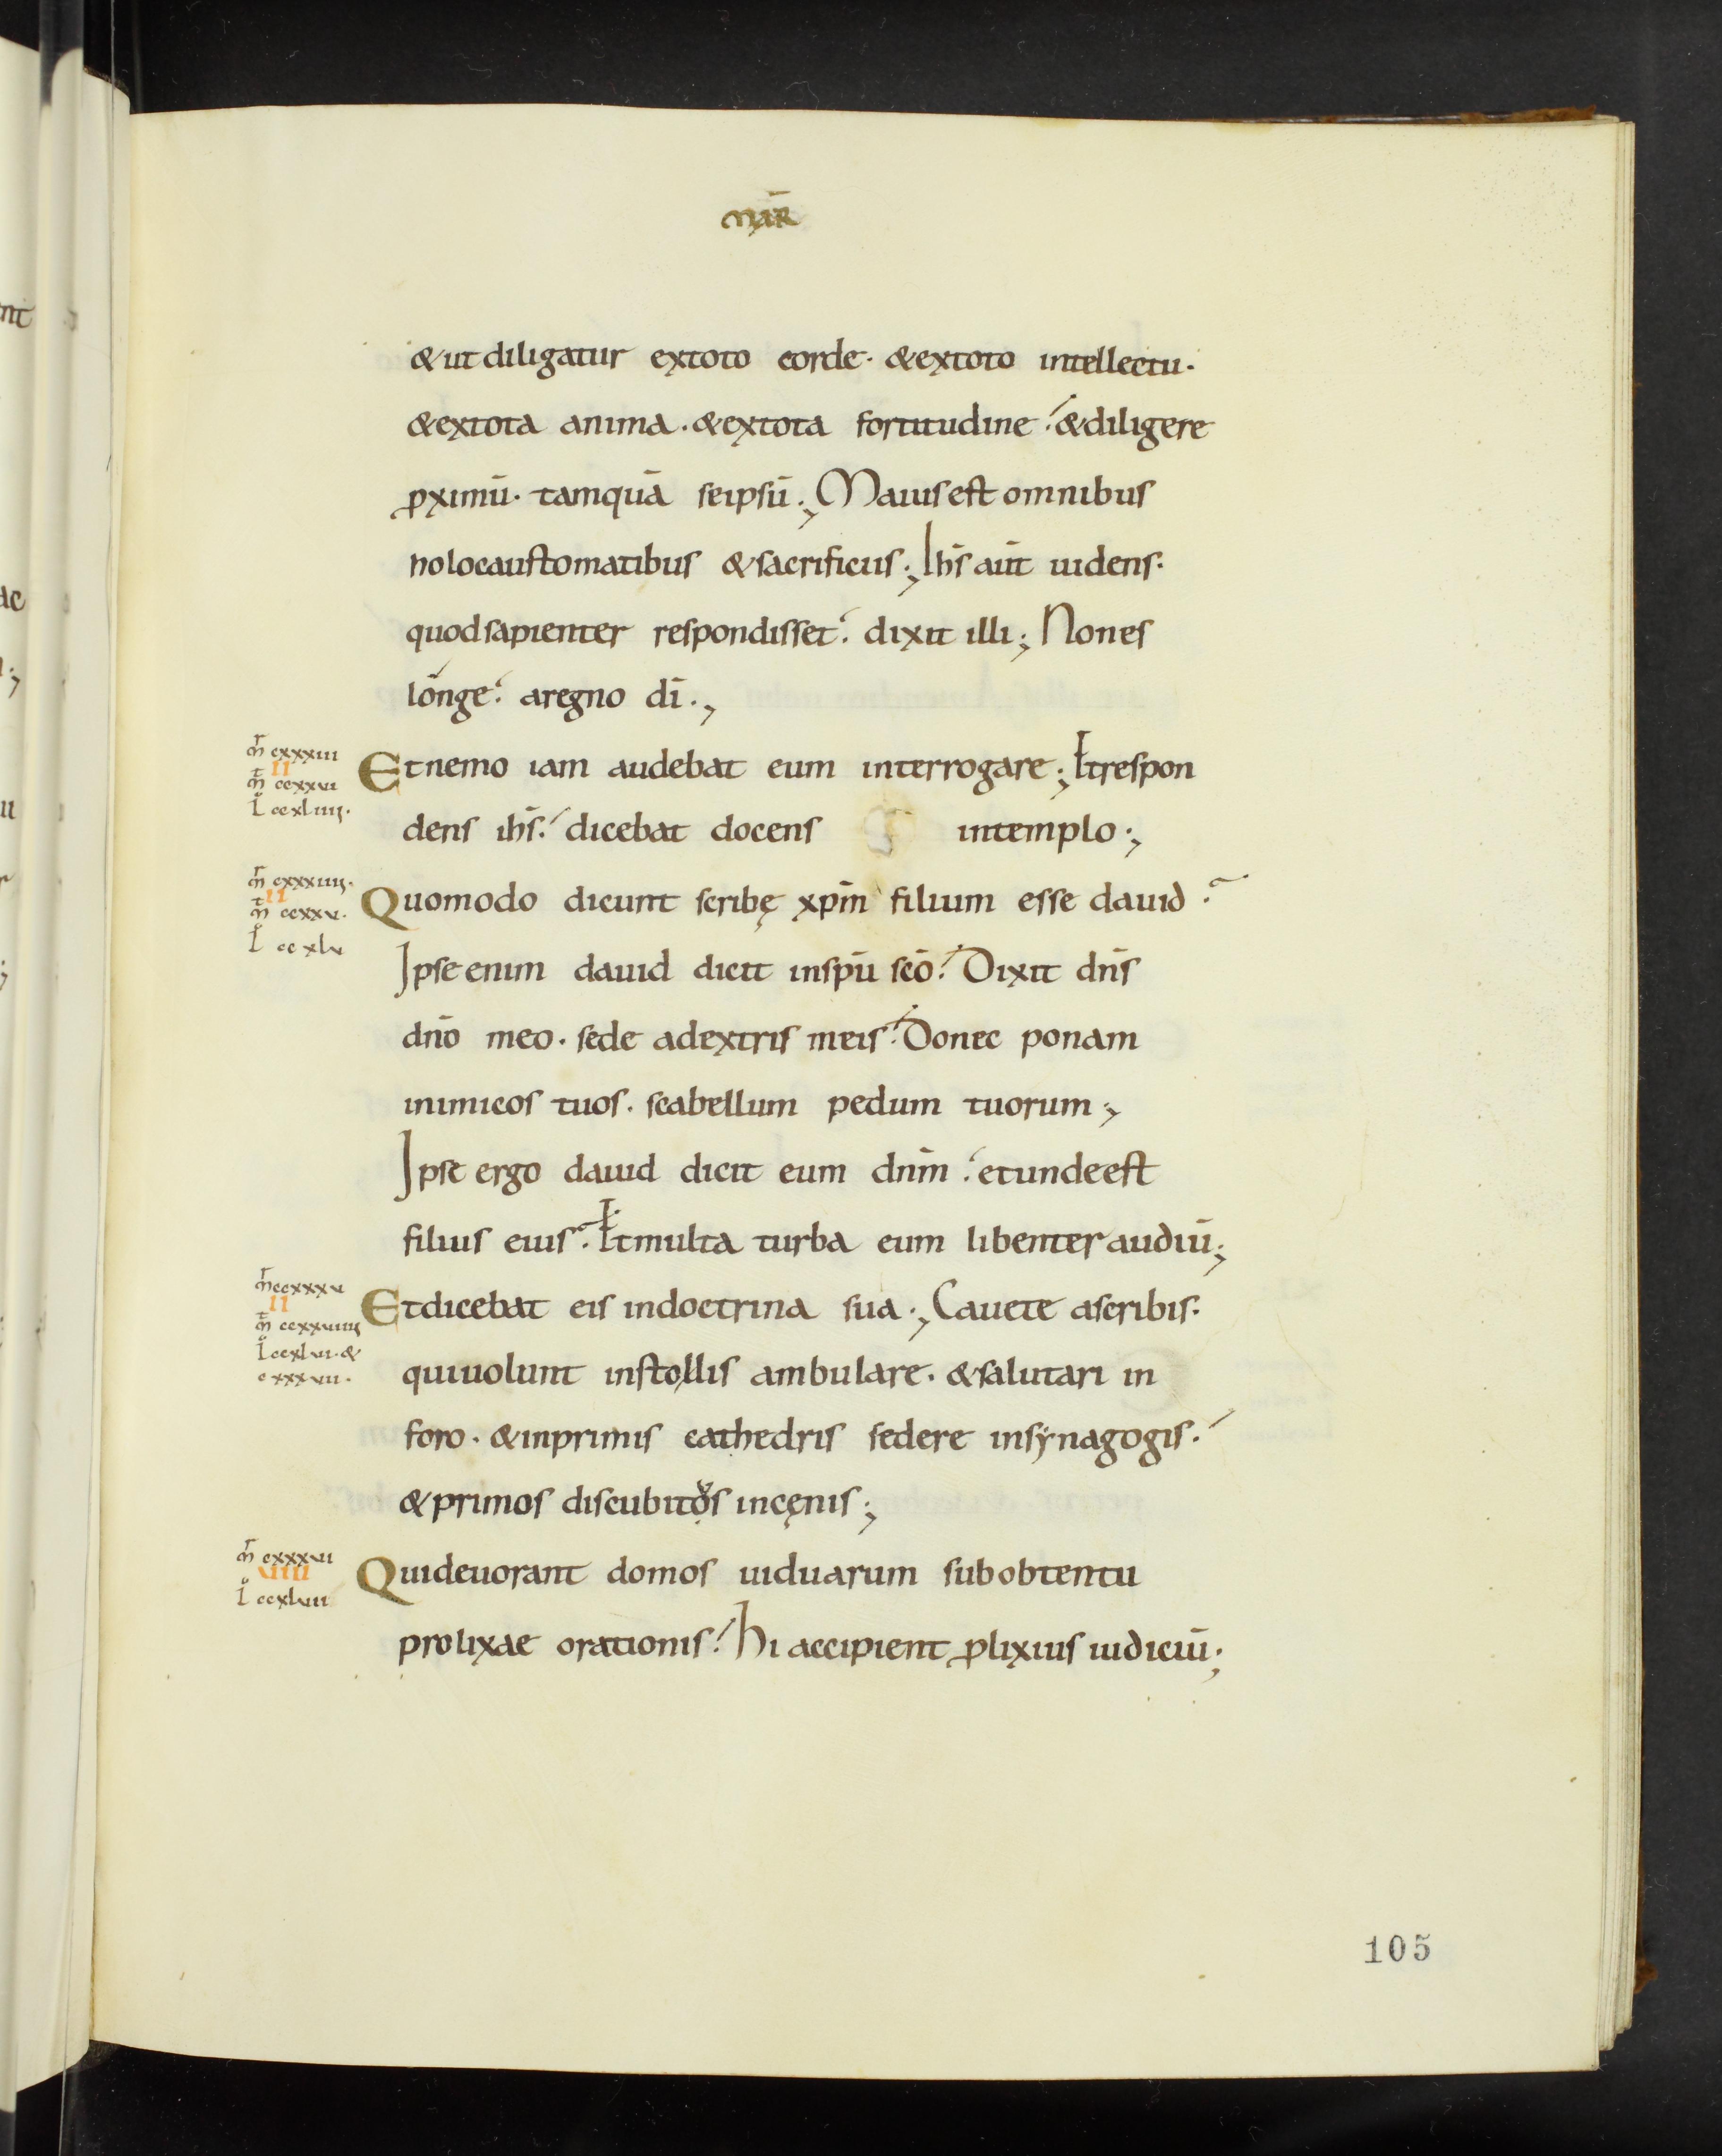 MAR̄
& ut diligatur extoto corde · &extoto intellectu ·
&extota anima · &extota fortitudine : &diligere
ꝓximū · tamquā seipsū ; Maius est omnibus
holocaustomatibus & sacrificiis ; Ih̄s aūt uidens ·
quod sapienter respondisset : dixit illi ; Non es
lónge : aregno dī ;
m̄r cxxxiii
II
m̄t ccxxvi
l̊ ccxliiii ·
Et nemo iam audebat eum interrogare ; Et respon
dens ih̄s : dicebat docens intemplo ;
m̄r cxxxiiii ·
II
m̄t ccxxv ·
l̊ ccxlv
Quomodo dicunt scribę xp̄m filium esse dauid ?
Ipse enim dauid dicit inspū scō : Dixit dn̄s
dn̄o meo · sede adextris meis : Donec ponam
inimicos tuos · scabellum pedum tuorum ;
Ipse ergo dauid dicit eum dn̄m : et unde est
filius eius ? Et multa turba eum libenter audiū ;
m̄r ccxxxv
II
m̄t ccxxviiii
l̊ ccxlvi · &
cxxxvii ·
Et dicebat eis indoctrina sua ; Cauete ascribis ·
qui uolunt instollis ambulare · & salutari in
foro · & inprimis cathedris sedere insẏnagogis :
& primos discubitos incęnis ;
m̄r cxxxvi
VIII
l̊ ccxlvii
Qui deuorant domos uiduarum sub obtentu
prolixae orationis : hi accipient ꝓlixius iudiciū ;
105